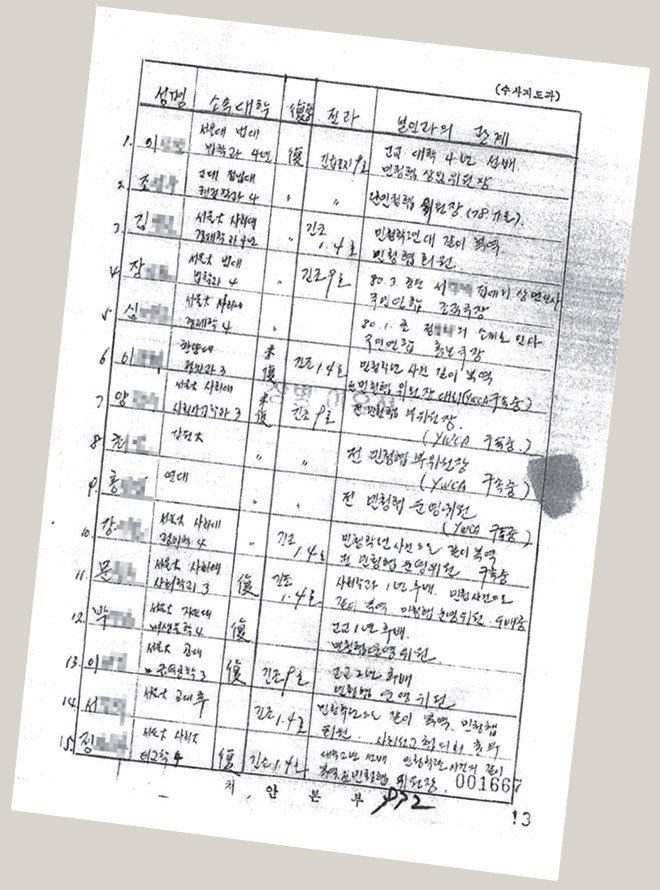 (수사지도과)
성명 소속대학 復 전과 본인과의 관계
1. 이 서울대 법대 법학과 4년 復 긴급조치 9호 고교 대학 4년 선배
민청협 상임위원장
2. 조 고대 정법대 4 〃 〃 위원장 (78
3. 김 서울大 사회대 경제학과 4년 〃 긴조 1.4호 민청학년대 같이 복역
민청협 회원.
4. 장 서울大 법대 법학과 4 〃 긴조 9호 80.3. 서 집에서
국민연합 조직국장
5. 심 서울大 사회대 경제학 4 〃 80.1. 의 소개로 인사
국민연합 홍보국장
6. 이 한양대 3 未復 긴조 1.4호 민청학년 사건 같이 복역
민청협 위원장 대리 (YWCA 구속중)
7. 양 서울大 사회대 3 未復 긴조 9호 전 민청협 부위원장.
(YWCA 구속중.)
8. 최 강원大 〃 〃 전 민청협 부위원장
(YWCA 구속중)
9. 홍 연대 〃 〃 전 민청협 운영위원
(YWCA 구속중)
10. 강 서울大 사회대 4 〃 긴조 1.4호 민청학년 사건으로 같이 복역
전 민청협 운영위원 구속중
11. 문 서울大 사회대 사회학과 3 復 긴조 1.4호 사회학과 1년 후배. 민청사건으로
같이 복역 민청협 운영위원. 수배중
12. 박 서울大 4 復 고교 1년 후배.
민청협 운영위원.
13. 이 서울大 공대 3 復 긴조 9호 고교 2년 후배
민청협 운영위원
14. 서 서울大 공대 긴조 1.4호 민청학년으로 같이 복역. 민청협
회원.
15. 정 서울大 사회大 4 復 긴조 1.4호 대학 2년 선배 민청학년 사건 같이
복역 민청협 위원장.
001667
치 안 본 부
932
13